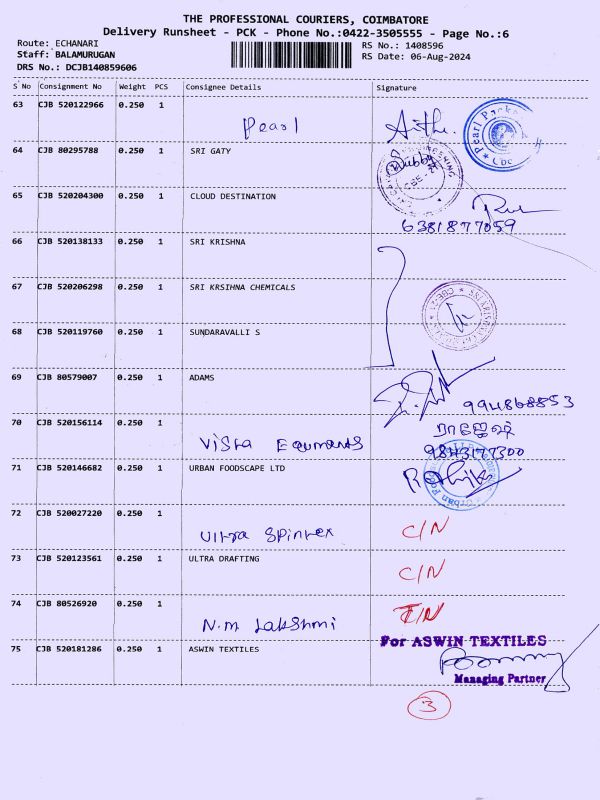 THE PROFESSIONAL COURIERS, COIMBATORE
Delivery Runsheet - PCK - Phone No.:0422-3505555 - Page No.:6
Route: ECHANARI
RS No.: 1408596
Staff: BALAMURUGAN
RS Date: 06-Aug-2024
DRS No.: DCJB140859606
S No Consignment No Weight PCS Consignee Details Signature
63 CJB 520122966 0.250 1
Pearl
64 CJB 80295788 0.250 1 SRI GATY
65 CJB 520204300 0.250 1 CLOUD DESTINATION
6381877059
66 CJB 520138133 0.250 1 SRI KRISHNA
67 CJB 520206298 0.250 1 SRI KRSIHNA CHEMICALS
68 CJB 520119760 0.250 1 SUNDARAVALLI S
69 CJB 80579007 0.250 1 ADAMS
994868853
70 CJB 520156114 0.250 1
ராஜேஷ்
Vista
9843177300
71 CJB 520146682 0.250 1 URBAN FOODSCAPE LTD
72 CJB 520027220 0.250 1
Ultra Spintex C/N
73 CJB 520123561 0.250 1 ULTRA DRAFTING
C/N
74 CJB 80526920 0.250 1
N.M Lakshmi
75 CJB 520181286 0.250 1 ASWIN TEXTILES
For ASWIN TEXTILES
Managing Partner
3